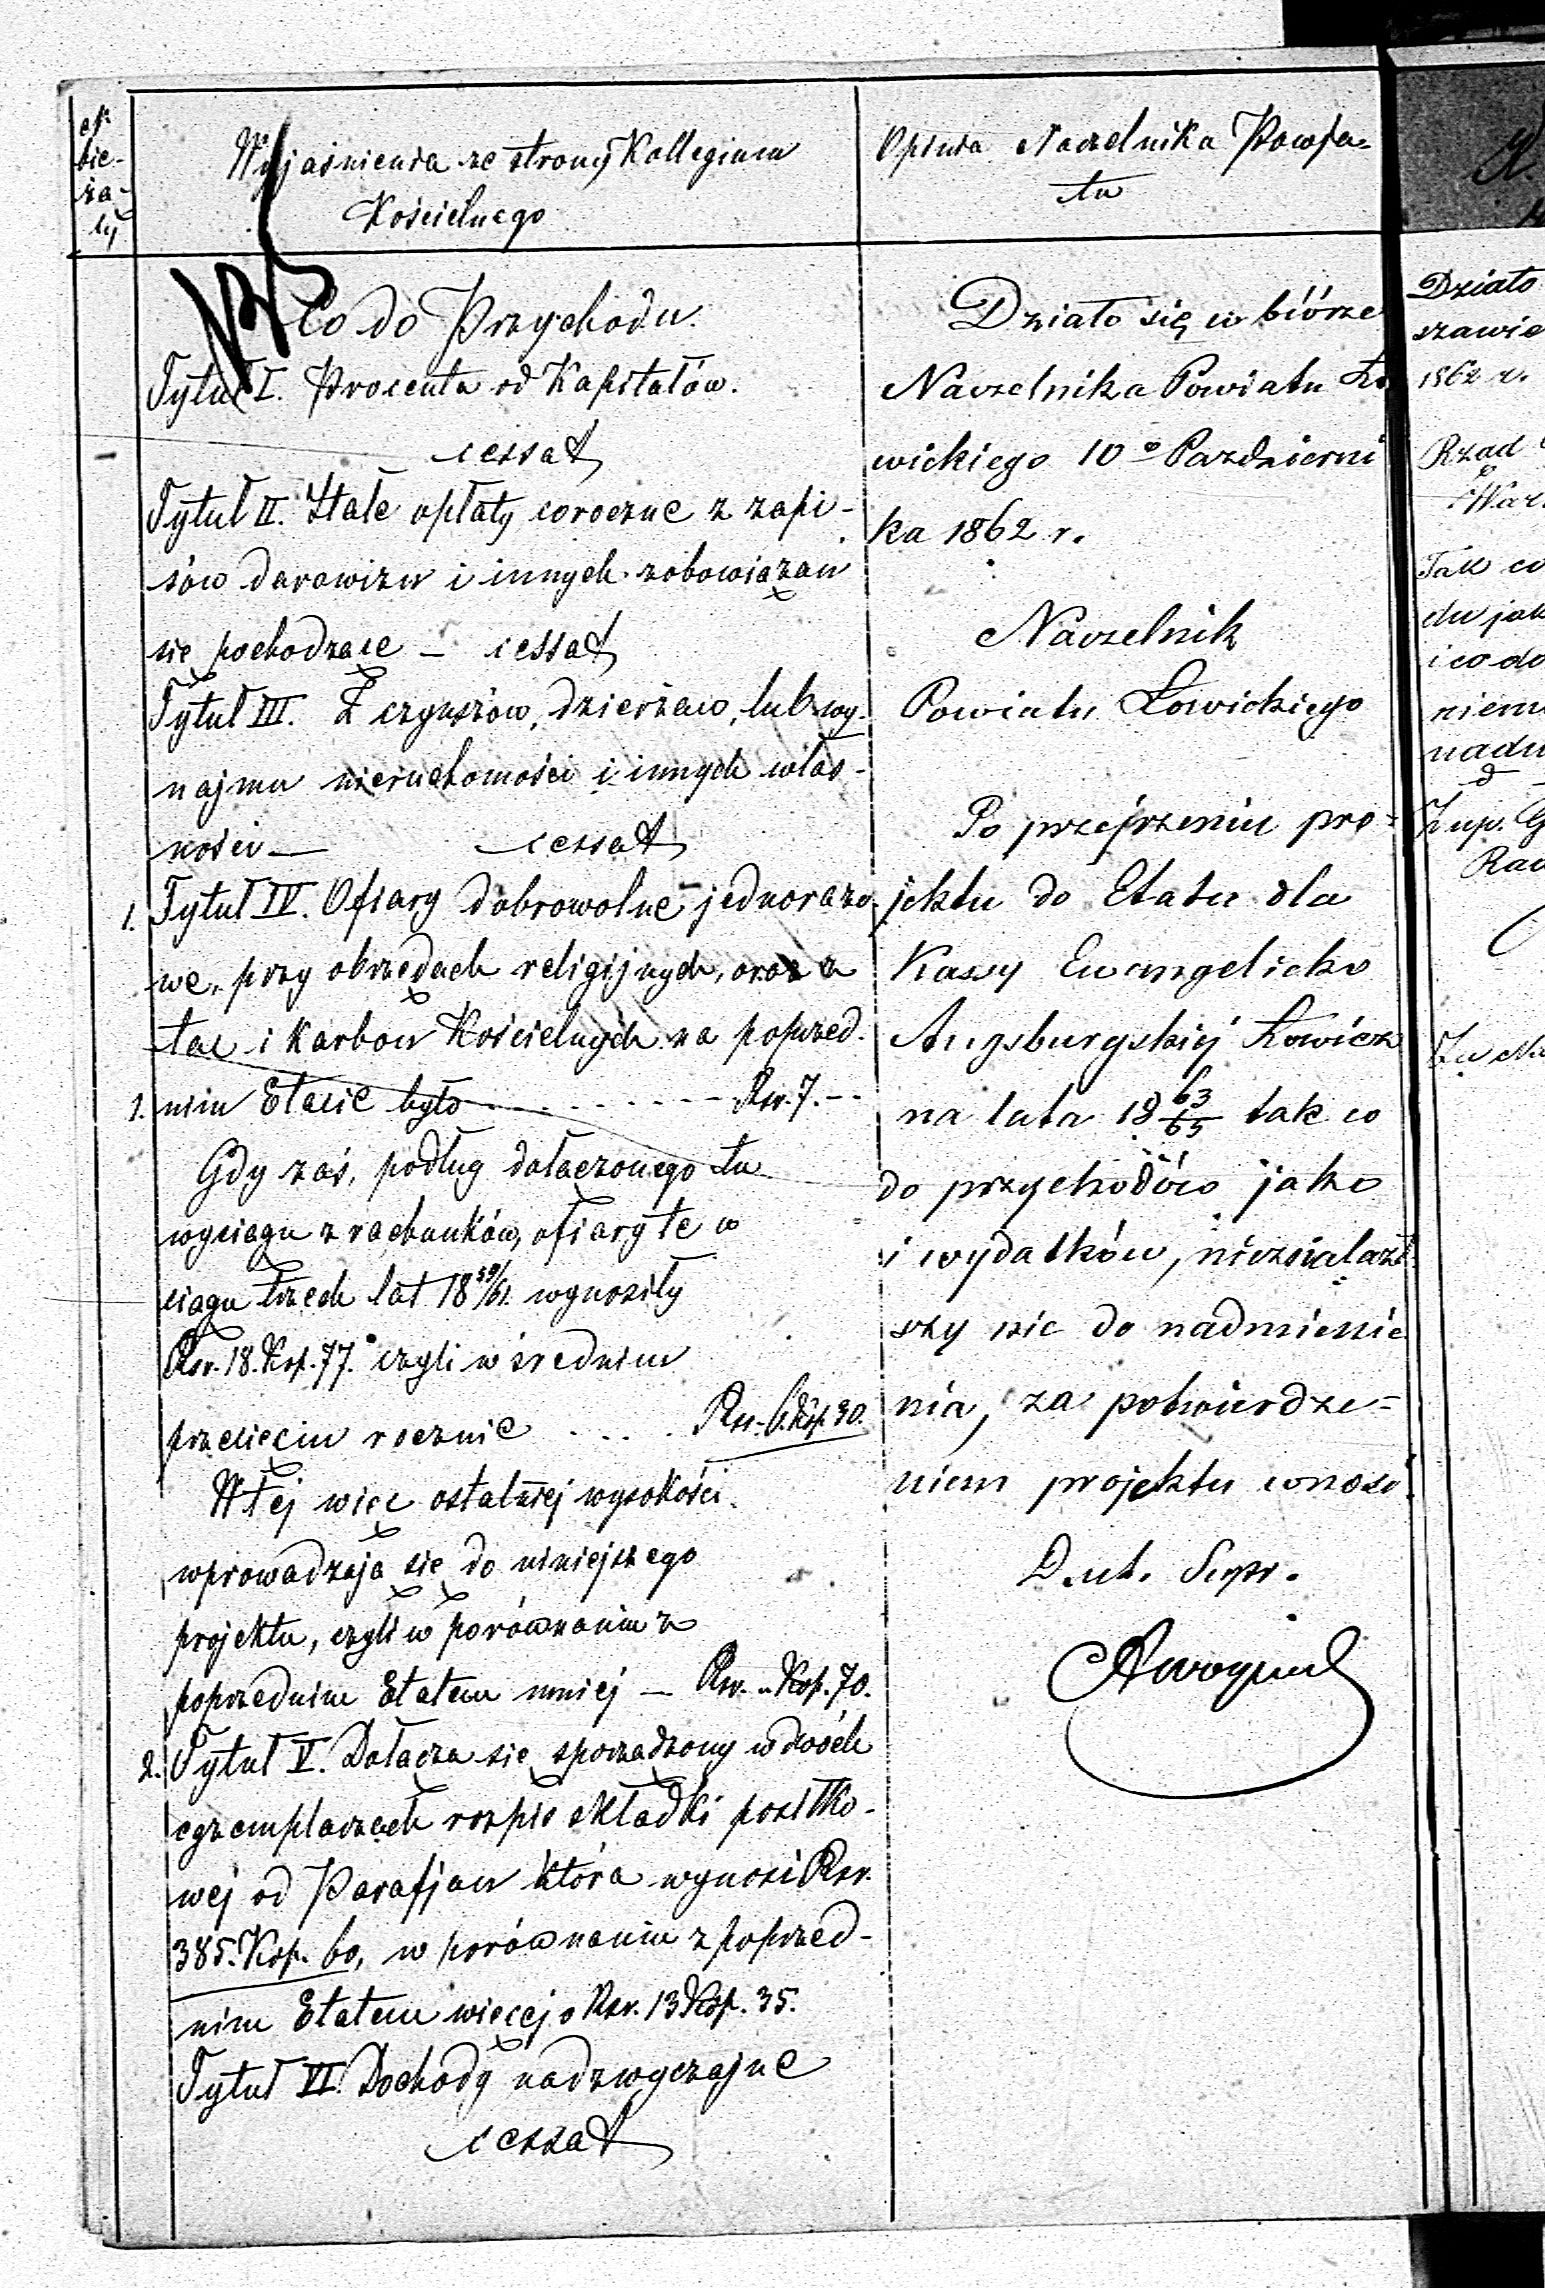 №
bie-
żą-
cy
Wyjaśnienia ze strony Kollegium
Kościelnego
Co do Przychodu.
Tytuł I. Procenta od Kapitałów.
cessat
Tytuł II. Stałe opłaty coroczne z zapi-
sów darowizn i innych zobowiązań
się pochodzące — cessat
Tytuł III. Z czynszów, dzierżaw, lub wy-
najmu nieruchomości i innych włas-
ności — cessat
1. Tytuł IV. Ofiary dobrowolne jednorazo-
we, przy obrzędach religijnych, oraz z
tac i karbon Kościelnych na poprzed-
1. nim Etacie było - - - - - - - Rsr. 7. —
Gdy zaś, podług dołączonego tu
wyciągu z rachunków, ofiary te w
ciągu trzech lat 18 59/61. wynosiły
Rsr. 18. Kop. 77. czyli w średnim
przecięciu rocznie . . . . Rsr. 6. Kop. 30.
W tej więc ostatniej wysokości
wprowadzają się do niniejszego
projektu, czyli w porównaniu z
poprzednim Etatem mniej — Rsr. „ Kop. 70.
2. Tytuł V. Dołącza się sporządzony w dwóch
egzemplarzach rozpis składki posiłko-
wej od Parafjan która wynosi Rsr.
385. Kop. 60, w porównaniu z poprzed-
nim Etatem więcej o Rsr. 13 Kop. 35.
Tytuł VI. Dochody nadzwyczajne
cessat
Opinia Naczelnika Powia-
tu
Działo się w biórze
Naczelnika Powiatu Ło
wickiego 10º Październi
ka 1862 r.
Naczelnik
Powiatu Łowickiego
Po przejrzeniu pro-
jektu do Etatu dla
Kassy Ewangelicko
Augsburgskiej Łowicz
na lata 18 63/65 tak co
do przychodów jako
i wydatków, nieznalazł
szy nic do nadmienie
nia, za potwierdze-
niem projektu wnosi.
Działo
szawie
1862 r.
Rząd
War.
Tak co
du jak
i co do
niem
nadm
Z up. G
Rad
Za Na